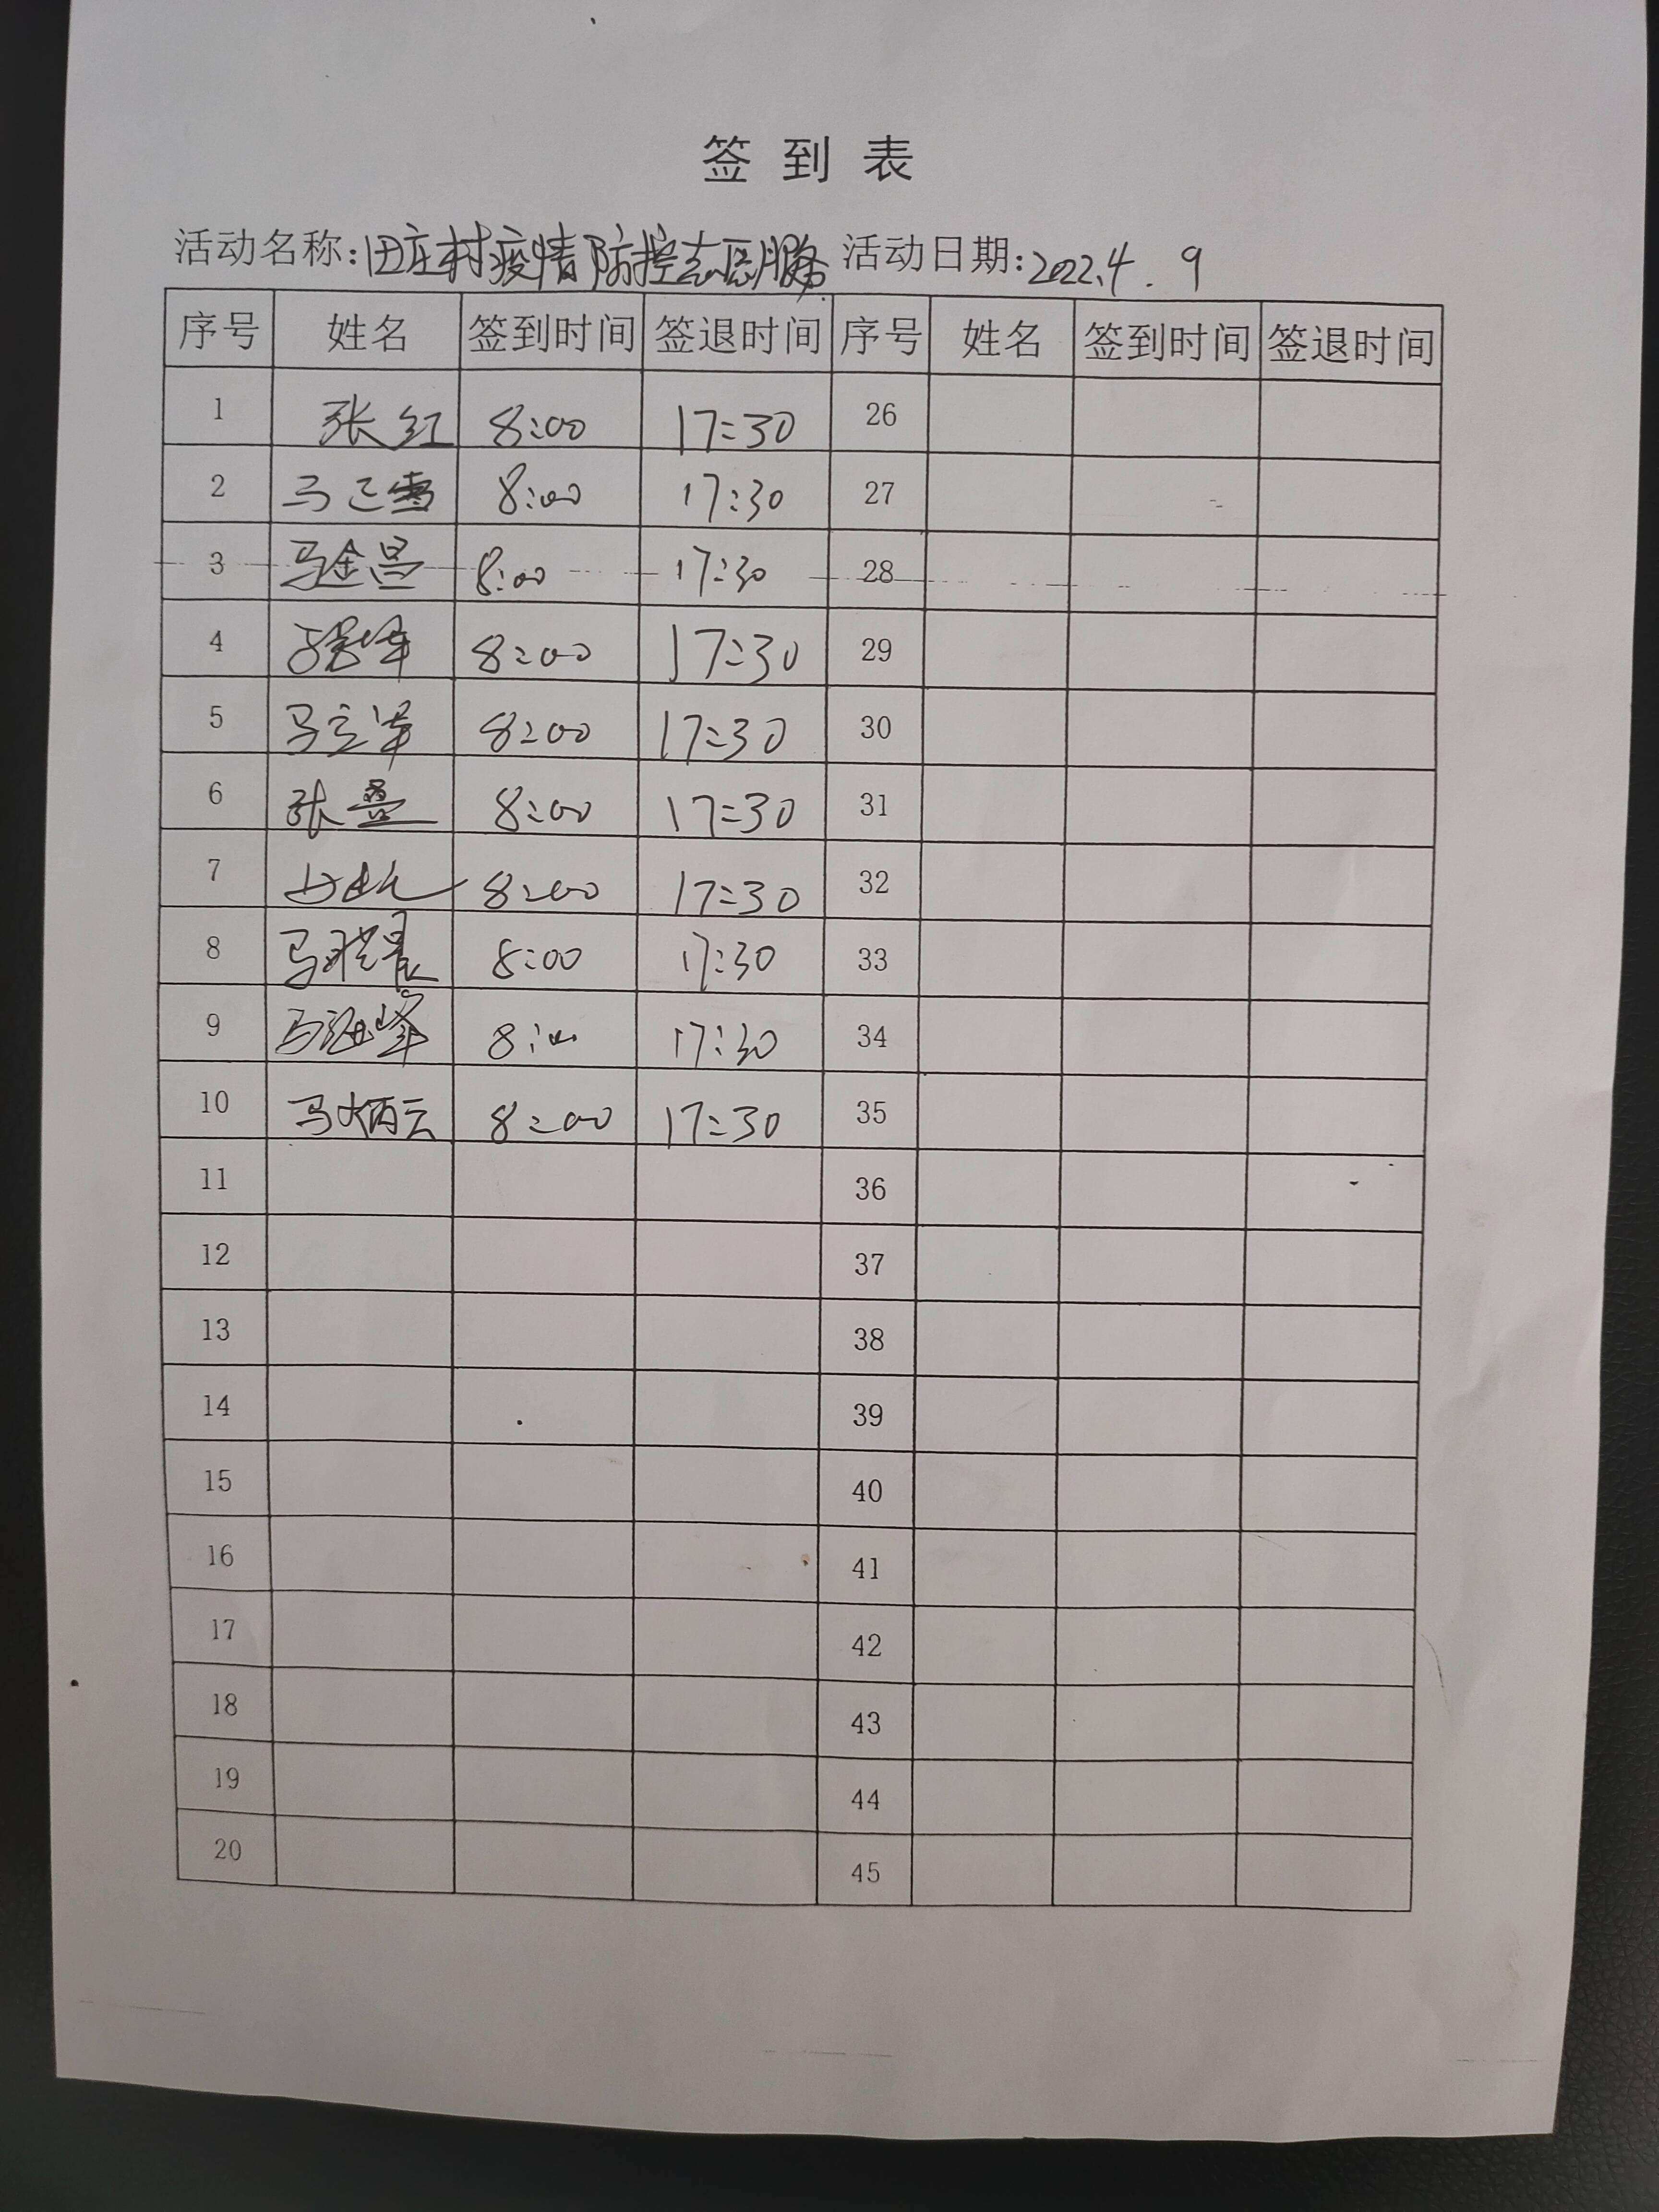 签到表
活动名称:田庄村疫情防控志愿服务 活动日期:2022.4.9
序号 姓名 签到时间 签退时间 序号 姓名 签到时间 签退时间
1 张红 8:00 17:30 26
2 马正雪 8:00 17:30 27
3 马金昌 8:00 17:30 28
4 8:00 17:30 29
5 马立军 8:00 17:30 30
6 张叠 8:00 17:30 31
7 8:00 17:30 32
8 马晓晨 8:00 17:30 33
9 马海峰 8:00 17:30 34
10 马炳云 8:00 17:30 35
11 36
12 37
13 38
14 39
15 40
16 41
17 42
18 43
19 44
20 45